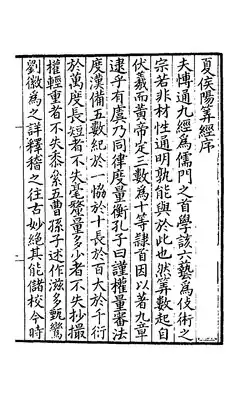 夏侯陽筭經序
夫博通九經為儒門之首學該六藝為伎術之
宗若非材性通明孰能與於此也然筭數起自
伏羲而黃帝定三數為十等隸首因以著九章
上乎有虞乃同律度量衡孔子曰謹權量審法
度漢備五數紀於一協於十長於百大於千衍
於萬度長短者不失毫釐量多少者不失抄撮
權輕重者不失黍絫五曹孫子述作滋多甄鸞
劉徽為之詳釋稽之往古妙絕其能儲校今時